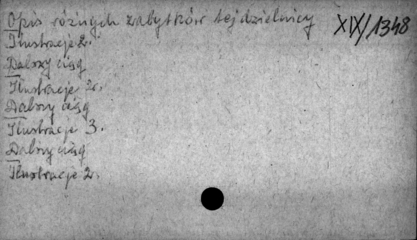 Opis różnych zabytków tej dzielnicy XIX/1348
Ilustracje 2.
Dalszy ciąg
Ilustracje 2.
Dalszy ciąg
Ilustracje 3.
Dalszy ciąg
Ilustracje 2.